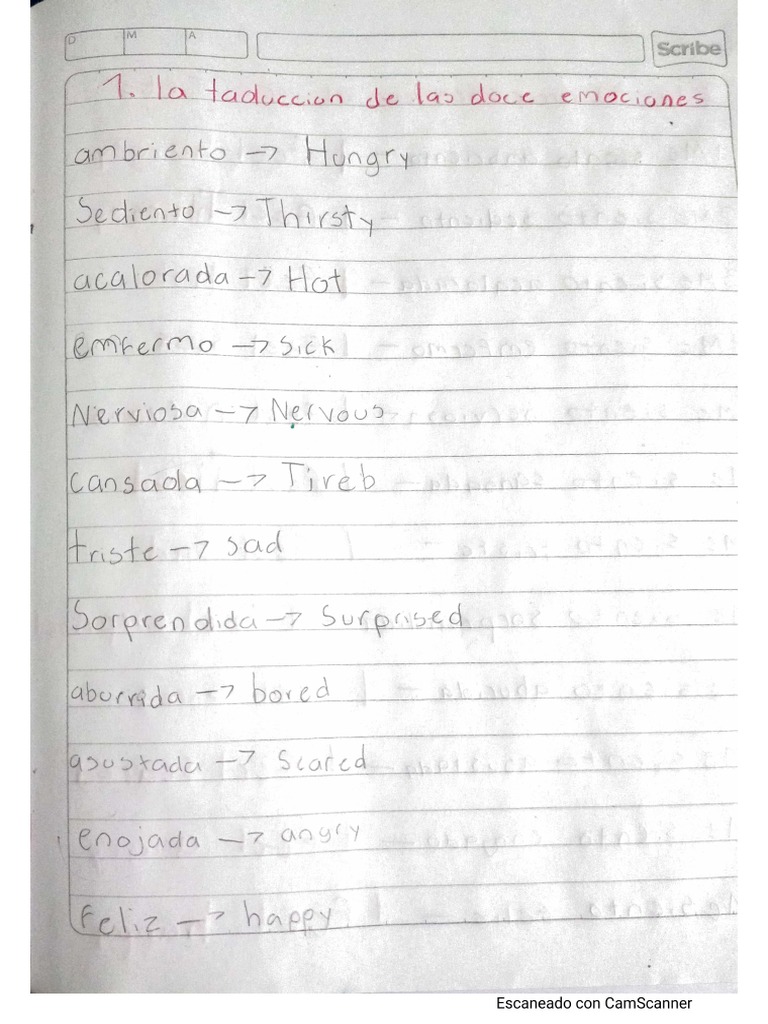 D M A Scribe
1. la taduccion de las doce emociones
ambriento → Hungry
Sediento → Thirsty
acalorada → Hot
emfermo → sick
Nerviosa → Nervous
cansada → Tireb
triste → sad
Sorprendida → Surprised
aburrida → bored
asustada → Scared
enojada → angry
feliz → happy
Escaneado con CamScanner